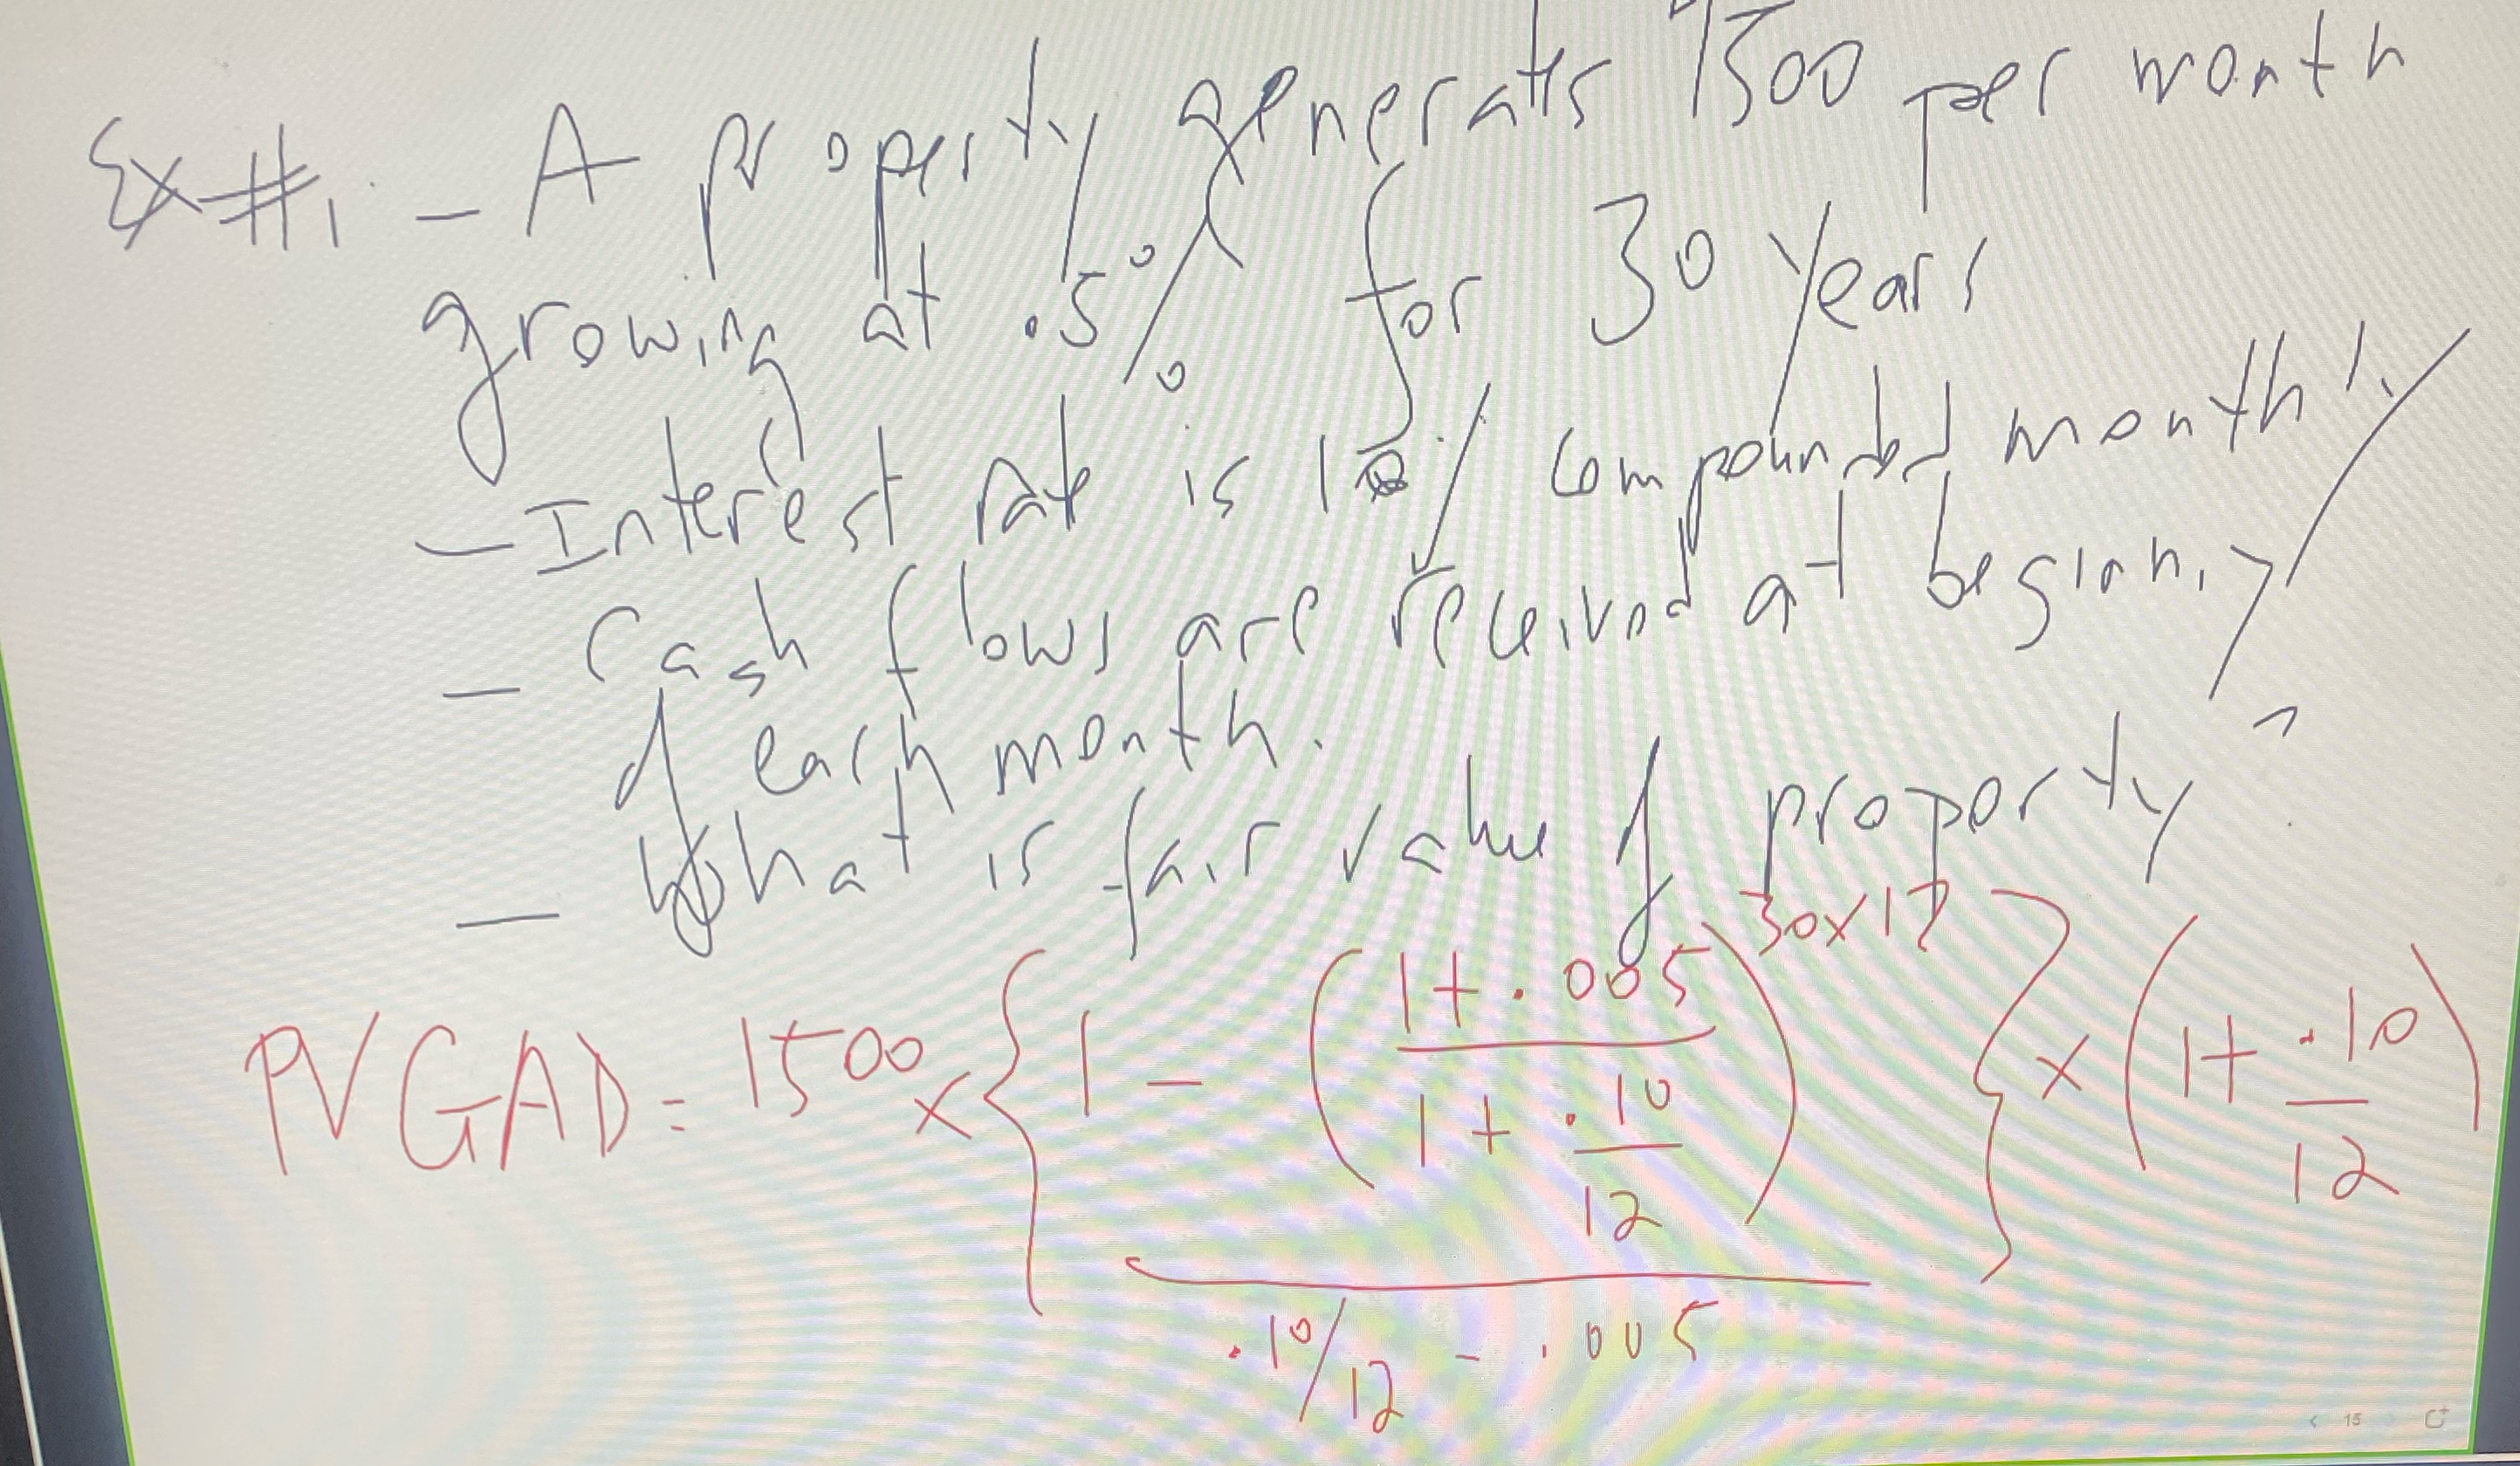 Ex #1 - A property generates 1500 per month
growing at .5% for 30 years
- Interest rate is 10% compounded monthly
- Cash flows are received at beginning
of each month.
- What is fair value of property?
PVGAD = 1500 × { 1 - ( 1 + .005 / 1 + .10 / 12 ) 30×12 / .10/12 - .005 } × ( 1 + .10 / 12 )
15